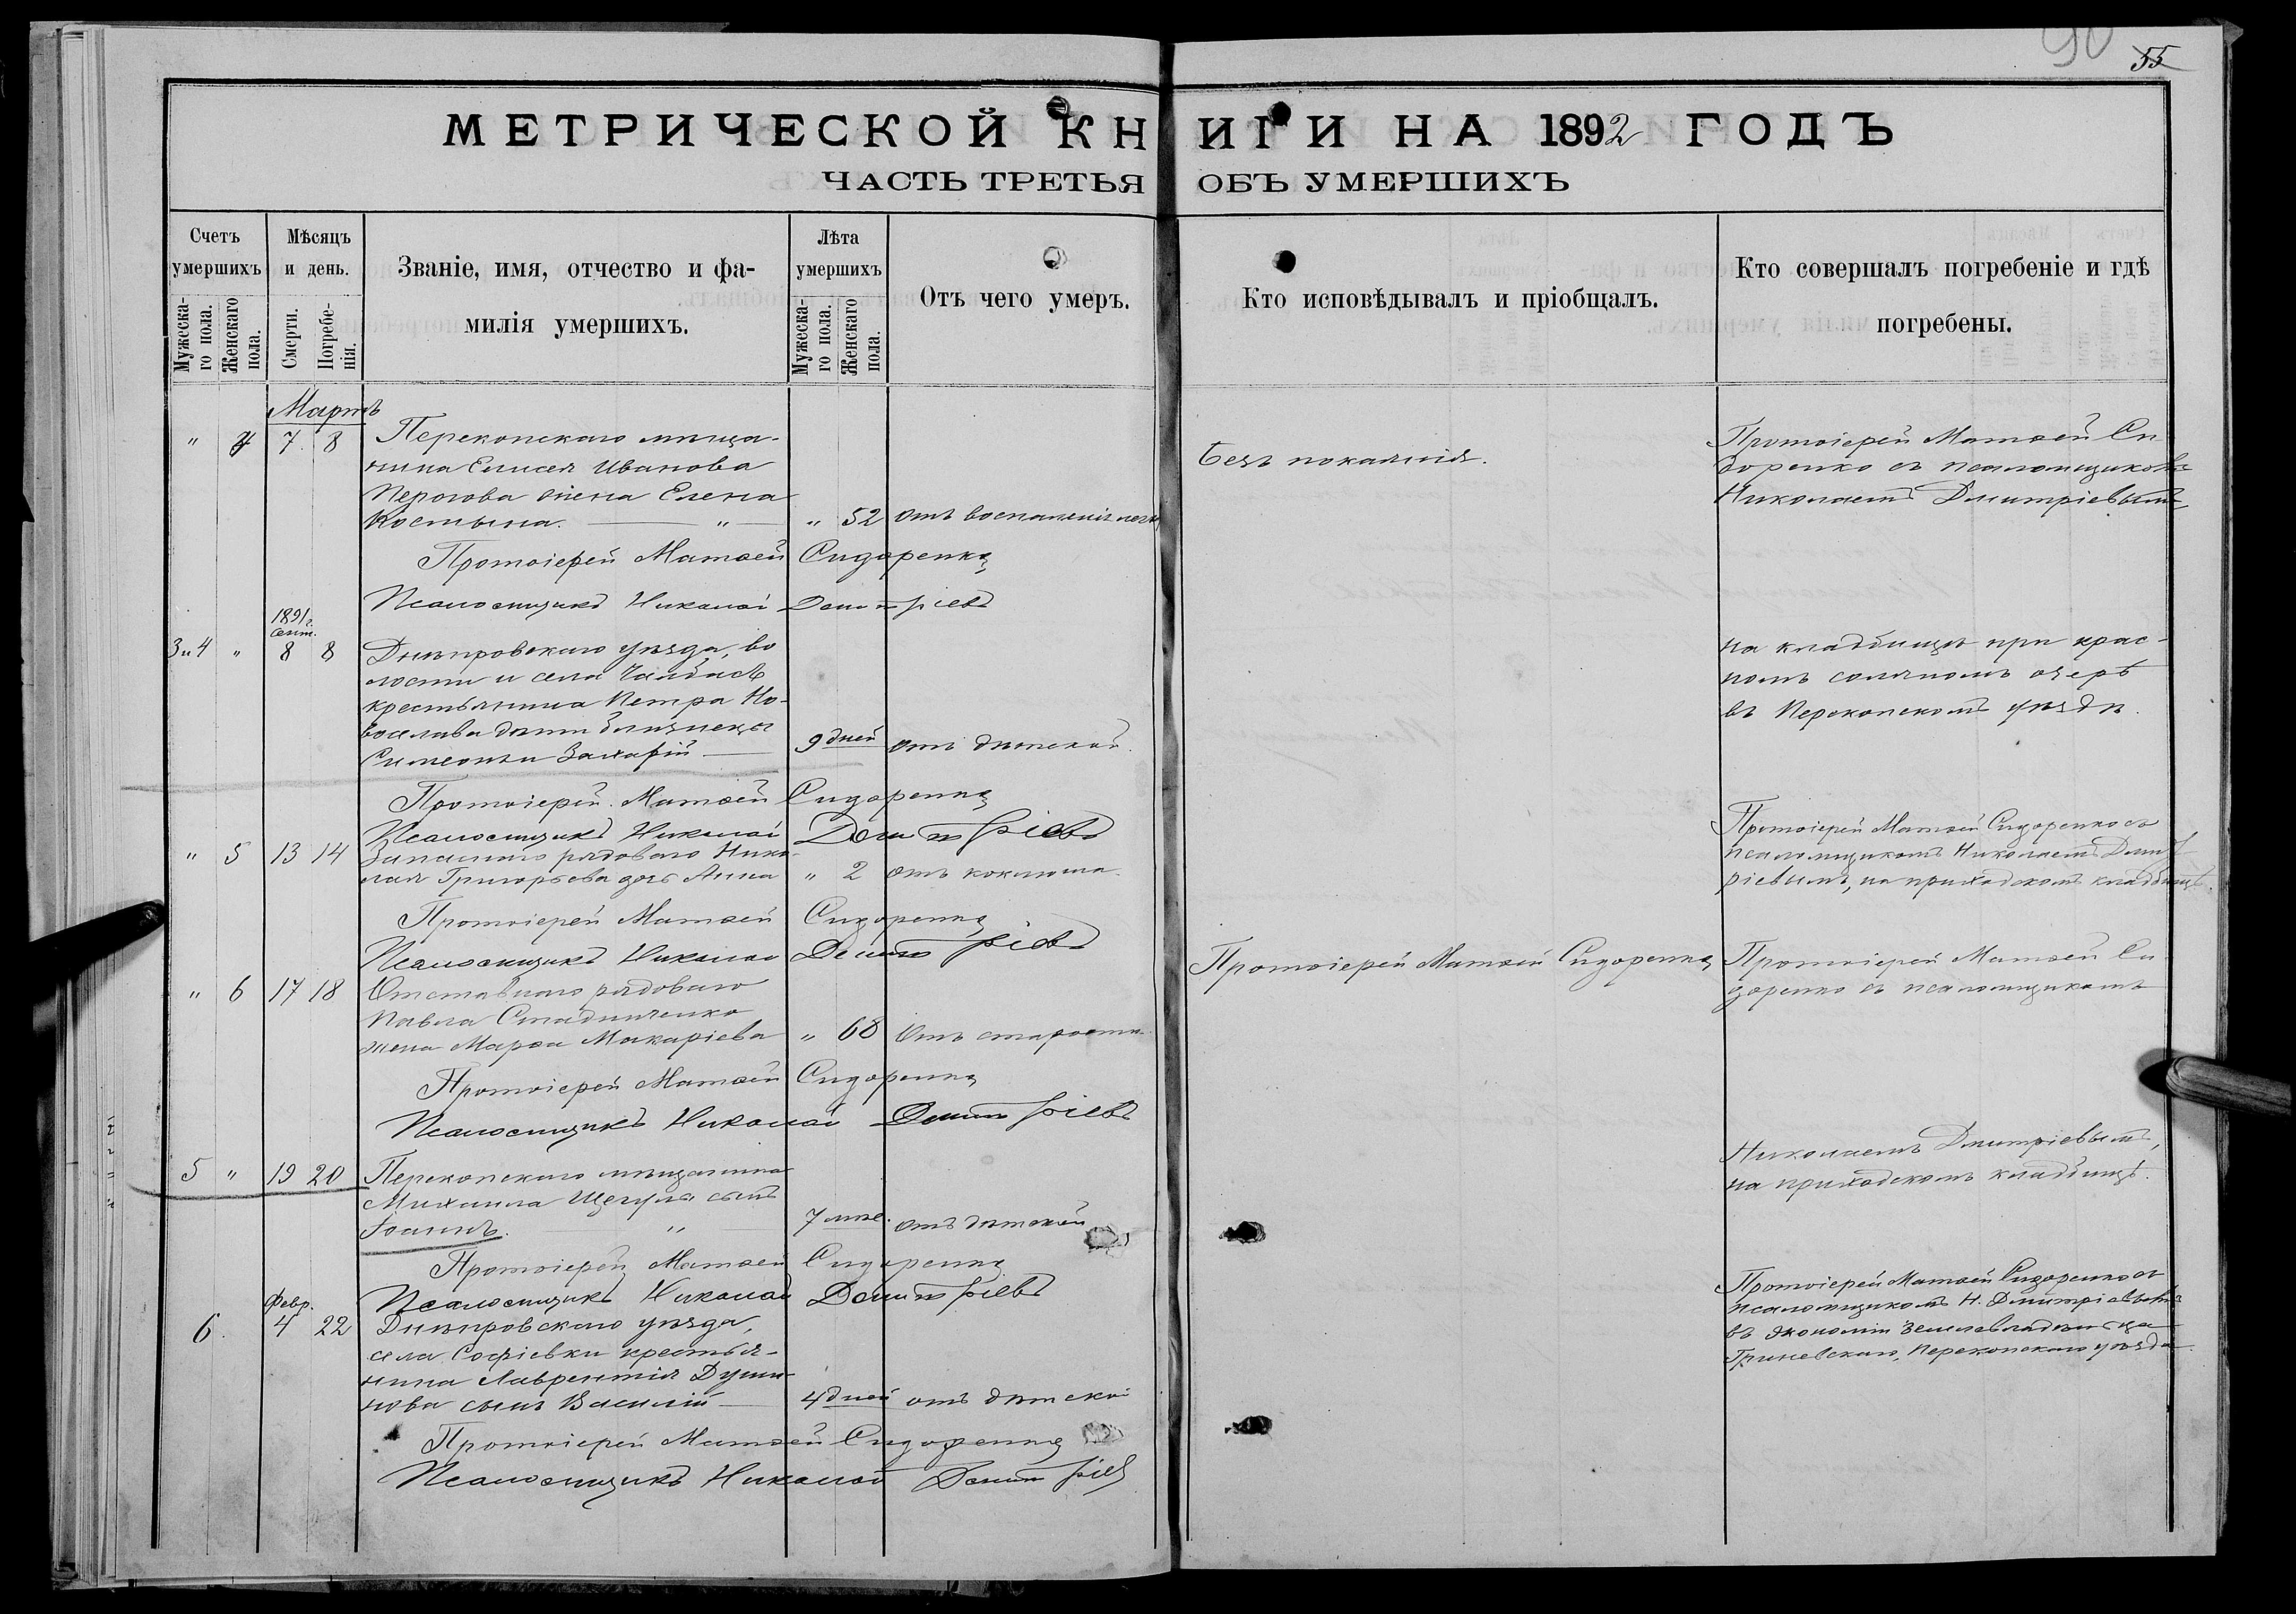 90
55
МЕТРИЧЕСКОЙ КНИГИ НА 1892 ГОДЪ
ЧАСТЬ ТРЕТЬЯ ОБЪ УМЕРШИХЪ
Счетъ умершихъ
Мужескаго пола.
Женскаго пола.
Мѣсяцъ и день.
Смерти.
Погребенія.
Званіе, имя, отчество и фамилія умершихъ.
Лѣта умершихъ
Мужескаго пола.
Женскаго пола.
Отъ чего умеръ.
Кто исповѣдывалъ и пріобщалъ.
Кто совершалъ погребеніе и гдѣ погребены.
Мартъ
" 4 7 8 Перекопскаго мѣща-
нина Елисея Иванова
жена Елена
" " 52 отъ воспаленія
Безъ покаянія.
Протоіерей Матѳей Си
доренко съ псаломщикомъ
Николаемъ Дмитріевымъ
Протоіерей Матѳей Сидоренко
Псаломщикъ Николай Дмитріевъ
1891 г.
сент.
3 и 4 " 8 8 Днѣпровскаго уѣзда, во
лости и села
крестьянина Петра Но-
дѣти близнецы
Симеонъ и Захарій 9 дней отъ дѣтской.
на кладбищѣ при крас-
номъ соляномъ озерѣ
въ Перекопскомъ уѣздѣ.
Протоіерей Матѳей Сидоренко
Псаломщикъ Николай Дмитріевъ
" 5 13 14 Запаснаго рядоваго Нико-
лая Григорьева дочь Анна " 2 отъ коклюша.
Протоіерей Матѳей Сидоренко съ
псаломщикомъ Николаемъ Дмит
ріевымъ, на приходскомъ кладбищѣ.
Протоіерей Матѳей Сидоренко
Псаломщикъ Николай Дмитріевъ
" 6 17 18 Отставнаго рядоваго
Павла Стадниченко
жена Марѳа Макаріева " 68 Отъ старости
Протоіерей Матѳей Сидоренко
Протоіерей Матѳей Си
доренко съ псаломщикомъ
Протоіерей Матѳей Сидоренко
Псаломщикъ Николай Дмитріевъ
Николаемъ Дмитріевымъ,
на приходскомъ кладбищѣ.
5 " 19 20 Перекопскаго мѣщанина
Михаила сынъ
Іоаннъ. " 7 мѣс. отъ дѣтской
Протоіерей Матѳей Сидоренко
Псаломщикъ Николай Дмитріевъ
Февр.
6. 4 22 Днѣпровскаго уѣзда,
села Софіевки крестья-
нина Лаврентія
сынъ Василій 4 дней отъ дѣтской
Протоіерей Матѳей Сидоренко съ
псаломщикомъ Н. Дмитріевымъ
въ экономіи землевладѣльца
Гриневскаго, Перекопскаго уѣзда.
Протоіерей Матѳей Сидоренко
Псаломщикъ Николай Дмитріевъ